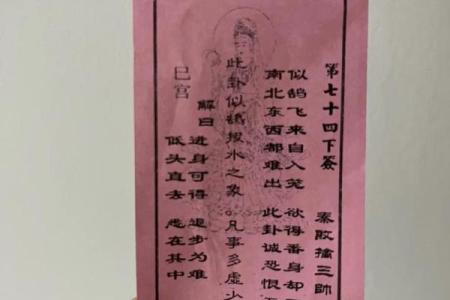 第七十四下签
秦败擒三帅
似鹄飞来自入笼 欲得番身却
南北东西都难出 此卦诚恐恨
此卦似鹄投水之象 凡事多虚少
解曰
进身可得 退步为难
低头直去 悉在其中
巳宫